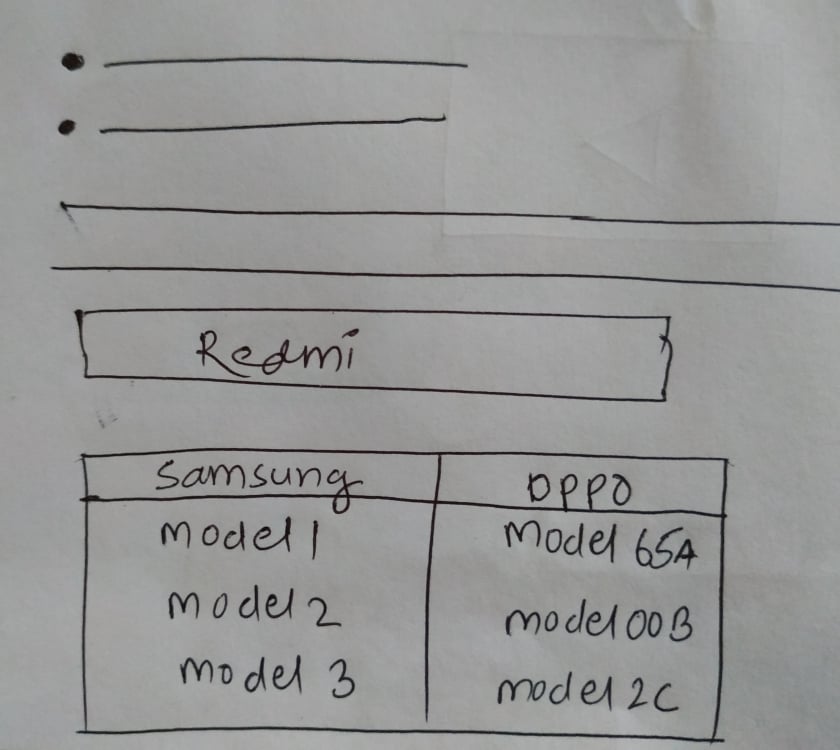 Redmi
Samsung OPPO
Model 1 Model 65A
Model 2 model 00B
Model 3 model 2C